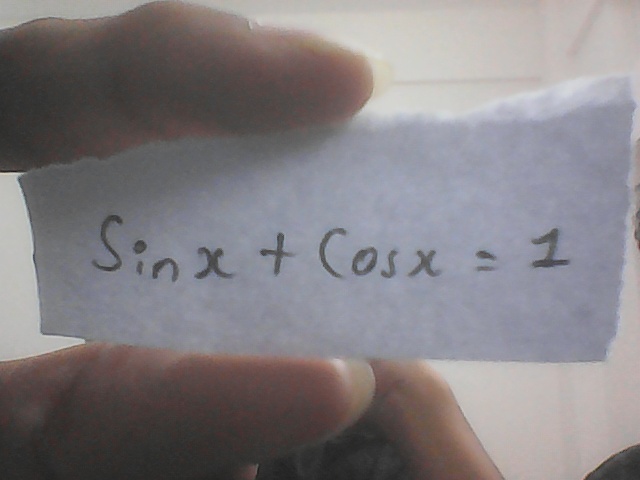 Sinx + Cosx = 1